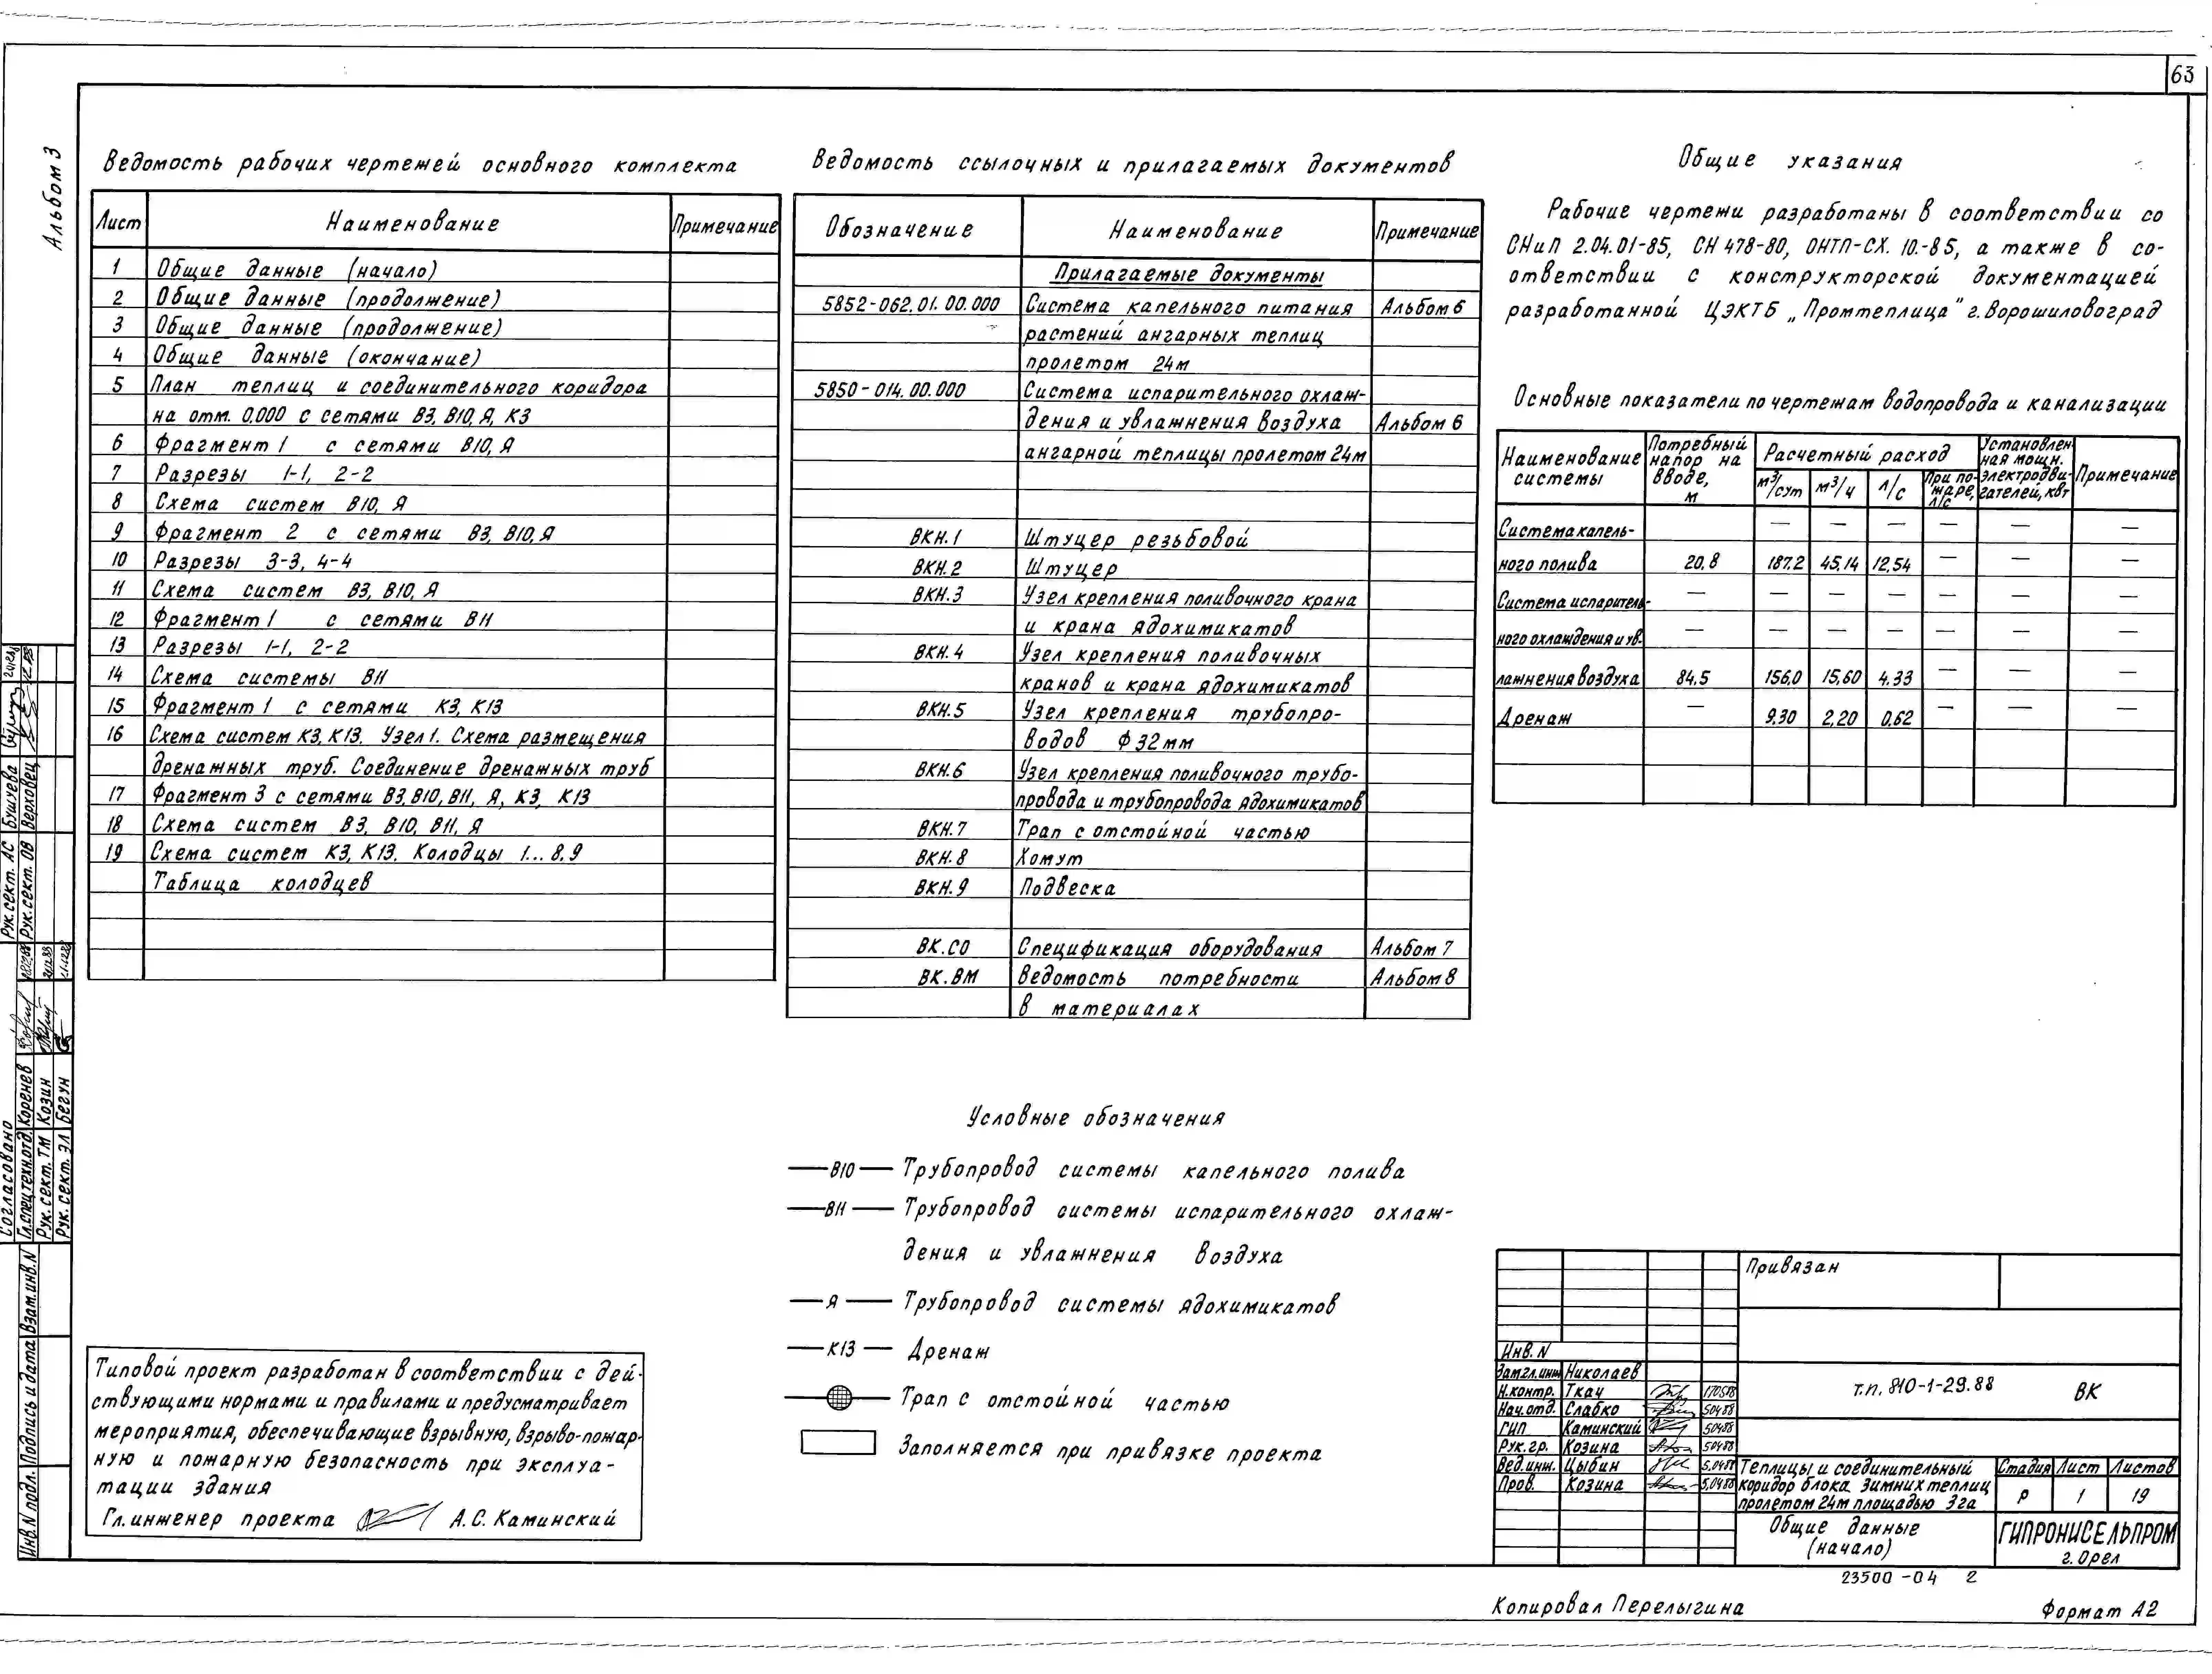 63
Альбом 3
Ведомость рабочих чертежей основного комплекта
Лист Наименование Примечание
1 Общие данные (начало)
2 Общие данные (продолжение)
3 Общие данные (продолжение)
4 Общие данные (окончание)
5 План теплиц и соединительного коридора
на отм. 0.000 с сетями В3, В10, Я, К3
6 Фрагмент 1 с сетями В10, Я
7 Разрезы 1-1, 2-2
8 Схема систем В10, Я
9 Фрагмент 2 с сетями В3, В10, Я
10 Разрезы 3-3, 4-4
11 Схема систем В3, В10, Я
12 Фрагмент 1 с сетями В11
13 Разрезы 1-1, 2-2
14 Схема системы В11
15 Фрагмент 1 с сетями К3, К13
16 Схема систем К3, К13. Узел 1. Схема размещения
дренажных труб. Соединение дренажных труб
17 Фрагмент 3 с сетями В3, В10, В11, Я, К3, К13
18 Схема систем В3, В10, В11, Я
19 Схема систем К3, К13. Колодцы 1...8.9
Таблица колодцев
Ведомость ссылочных и прилагаемых документов
Обозначение Наименование Примечание
Прилагаемые документы
5852-062.01.00.000 Система капельного питания Альбом 6
растений ангарных теплиц
пролетом 24м
5850-014.00.000 Система испарительного охлаж-
дения и увлажнения воздуха Альбом 6
ангарной теплицы пролетом 24м
ВКН.1 Штуцер резьбовой
ВКН.2 Штуцер
ВКН.3 Узел крепления поливочного крана
и крана ядохимикатов
ВКН.4 Узел крепления поливочных
кранов и крана ядохимикатов
ВКН.5 Узел крепления трубопро-
водов Ф32мм
ВКН.6 Узел крепления поливочного трубо-
провода и трубопровода ядохимикатов
ВКН.7 Трап с отстойной частью
ВКН.8 Хомут
ВКН.9 Подвеска
ВК.СО Спецификация оборудования Альбом 7
ВК.ВМ Ведомость потребности Альбом 8
в материалах
Общие указания
Рабочие чертежи разработаны в соответствии со
СНиП 2.04.01-85, СН 478-80, ОНТП-СХ. 10.-85, а также в со-
ответствии с конструкторской документацией
разработанной ЦЭКТБ „Промтеплица" г. Ворошиловоград
Основные показатели по чертежам водопровода и канализации
Наименование системы Потребный напор на вводе, м Расчетный расход Установлен ная мощн. электродви- гателей, квт Примечание
м³/сут м³/ч л/с При по- жаре, л/с
Система капель- — — — — — —
ного полива 20,8 187.2 45,14 12,54 — — —
Система испаритель- — — — — — — —
ного охлаждения и ув- — — — — — — —
лажнения воздуха 84,5 156,0 15,60 4.33 — — —
Дренаж — 9.30 2,20 0,62 — — —
Условные обозначения
В10 Трубопровод системы капельного полива
В11 Трубопровод системы испарительного охлаж-
дения и увлажнения воздуха
Я Трубопровод системы ядохимикатов
К13 Дренаж
Трап с отстойной частью
Заполняется при привязке проекта
Типовой проект разработан в соответствии с дей-
ствующими нормами и правилами и предусматривает
мероприятия, обеспечивающие взрывную, взрыво-пожар-
ную и пожарную безопасность при эксплуа-
тации здания
Гл. инженер проекта А.С. Каминский
Согласовано
Рук. сект. АС Бушуева
Рук. сект. ОВ Верховец
Гл. спец. техн. отд. Коренев
Рук. сект. ТМ Козин
Рук. сект. ЭЛ Бегун
Инв. N подл. Подпись и дата Взам. инв. N
Привязан
Инв. N
Зам гл. инж Николаев
Н.контр. Ткач 170588
Нач. отд. Слабко 50488
ГИП Каминский 50488
Рук. гр. Козина 50488
Вед. инж. Цыбин 5.0488
Пров. Козина 5.0488
т.п. 810-1-29.88 ВК
Теплицы и соединительный
коридор блока зимних теплиц
пролетом 24м площадью 3га
Стадия Лист Листов
Р 1 19
Общие данные
(начало)
ГИПРОНИСЕЛЬПРОМ
г. Орел
23500-04 2
Копировал Перелыгина
Формат А2